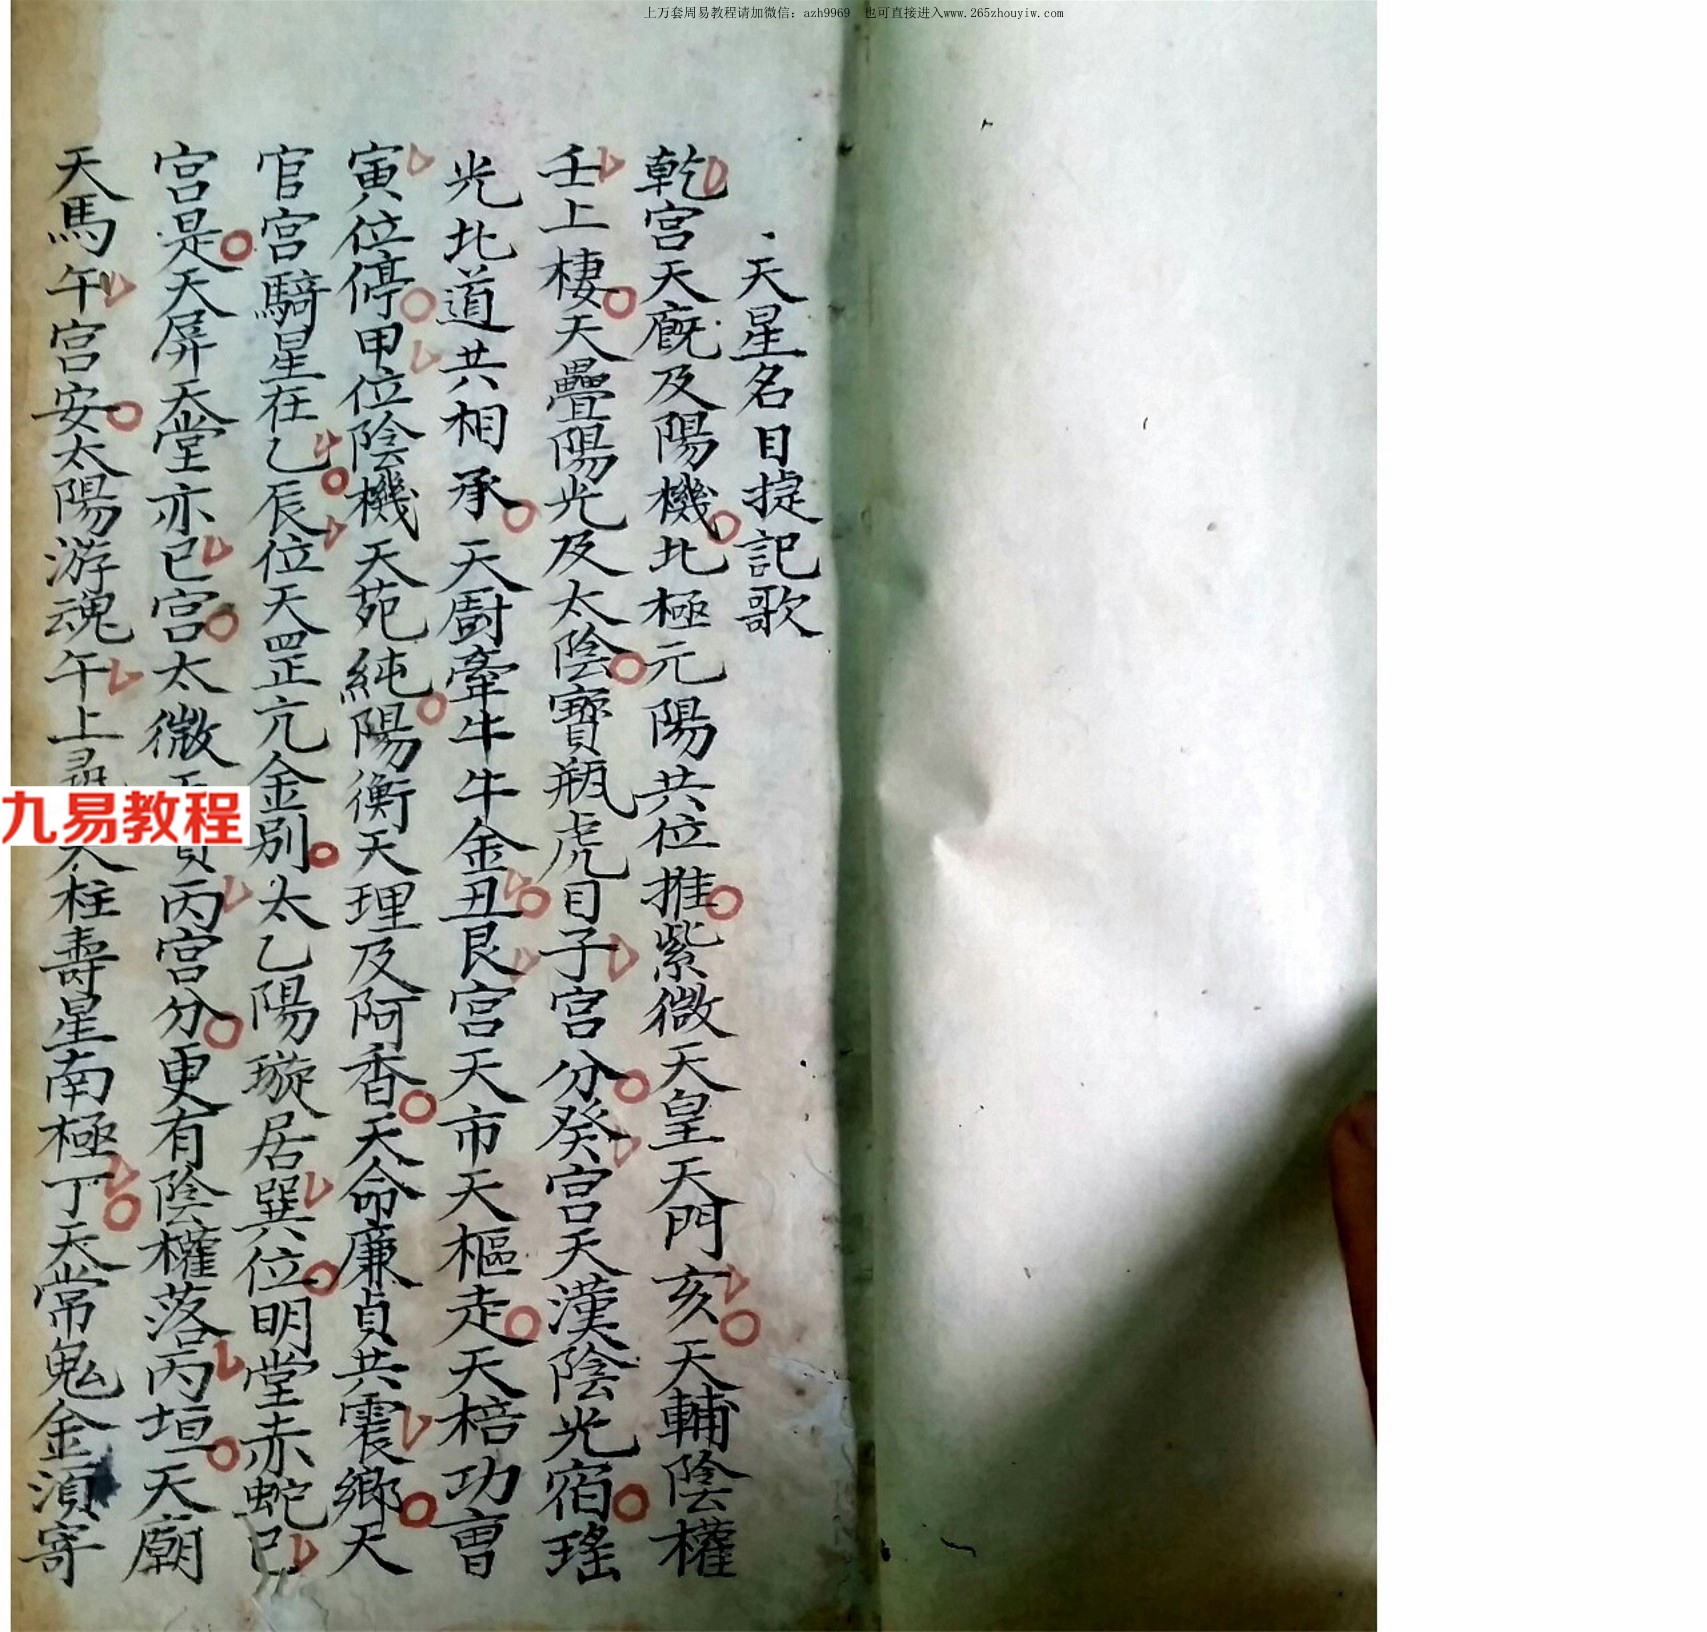 上万套周易教程请加微信：azh9969　也可直接进入www.265zhouyiw.com
天星名目捷記歌
乾宮天廐及陽機北極元陽共位推紫微天皇天門亥天輔陰權
壬上棲天疊陽光及太陰寶瓶虎目子宮分癸宮天漢陰光宿瑤
光北道共相承天廚牽牛牛金丑艮宮天市天樞走天棓功曺
寅位停甲位陰機天苑純陽衡天理及阿香天命廉貞共震鄉天
官宮騎星在乙辰位天罡亢金別太乙陽璇居巽位明堂赤蛇巳
宮是天屏天堂亦巳宮太微丙宮分更有陰權落丙垣天廟
天馬午宮安太陽游魂午上尋柱壽星南極丁天常鬼金湏寄
九易教程